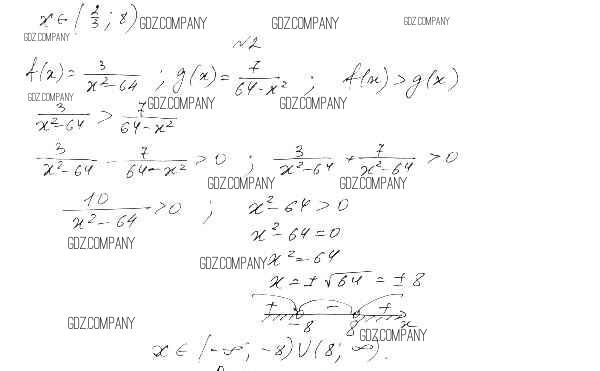 x ∈ (2/3; 8) GDZ.COMPANY GDZ.COMPANY GDZ.COMPANY
GDZ.COMPANY
№2
f(x) = 3/(x²-64) ; g(x) = 7/(64-x²) ; f(x) > g(x)
GDZ.COMPANY GDZ.COMPANY GDZ.COMPANY
3/(x²-64) > 7/(64-x²)
3/(x²-64) - 7/(64-x²) > 0 ; 3/(x²-64) + 7/(x²-64) > 0
GDZ.COMPANY GDZ.COMPANY
10/(x²-64) > 0 ; x²-64 > 0
GDZ.COMPANY x²-64 = 0
GDZ.COMPANY x² = 64
x = ±√64 = ±8
+ - +
-8 8 x
GDZ.COMPANY GDZ.COMPANY
x ∈ (-∞; -8) ∪ (8; ∞).